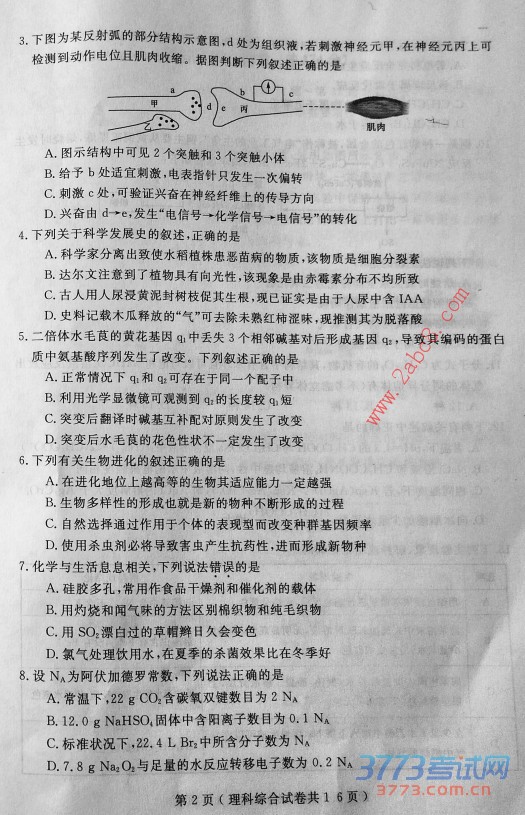 3.下图为某反射弧的部分结构示意图,d处为组织液,若刺激神经元甲,在神经元丙上可
检测到动作电位且肌肉收缩。据图判断下列叙述正确的是
a
b
c
甲
d
e
丙
肌肉
A.图示结构中可见2个突触和3个突触小体
B.给予b处适宜刺激,电表指针只发生一次偏转
C.刺激c处,可验证兴奋在神经纤维上的传导方向
D.兴奋由d→e,发生“电信号→化学信号→电信号”的转化
4.下列关于科学发展史的叙述,正确的是
A.科学家分离出致使水稻植株患恶苗病的物质,该物质是细胞分裂素
B.达尔文注意到了植物具有向光性,该现象是由赤霉素分布不均所致
C.古人用人尿浸黄泥封树枝促其生根,现已证实是由于人尿中含IAA
D.史料记载木瓜释放的“气”可去除未熟红柿涩味,现推测其为脱落酸
5.二倍体水毛茛的黄花基因q₁中丢失3个相邻碱基对后形成基因q₂,导致其编码的蛋白
质中氨基酸序列发生了改变。下列叙述正确的是
A.正常情况下q₁和q₂可存在于同一个配子中
B.利用光学显微镜可观测到q₂的长度较q₁短
C.突变后翻译时碱基互补配对原则发生了改变
D.突变后水毛茛的花色性状不一定发生了改变
6.下列有关生物进化的叙述正确的是
A.在进化地位上越高等的生物其适应能力一定越强
B.生物多样性的形成也就是新的物种不断形成的过程
C.自然选择通过作用于个体的表现型而改变种群基因频率
D.使用杀虫剂必将导致害虫产生抗药性,进而形成新物种
7.化学与生活息息相关,下列说法错误的是
A.硅胶多孔,常用作食品干燥剂和催化剂的载体
B.用灼烧和闻气味的方法区别棉织物和纯毛织物
C.用SO₂漂白过的草帽辫日久会变色
D.氯气处理饮用水,在夏季的杀菌效果比在冬季好
8.设N_A为阿伏加德罗常数,下列说法正确的是
A.常温下,22 g CO₂含碳氧双键数目为2 N_A
B.12.0 g NaHSO₄固体中含阳离子数目为0.1 N_A
C.标准状况下,22.4 L Br₂中所含分子数为N_A
D.7.8 g Na₂O₂与足量的水反应转移电子数为0.2 N_A
第2页(理科综合试卷共16页)
www.2abc8.com
3773考试网
www.3773.com.cn